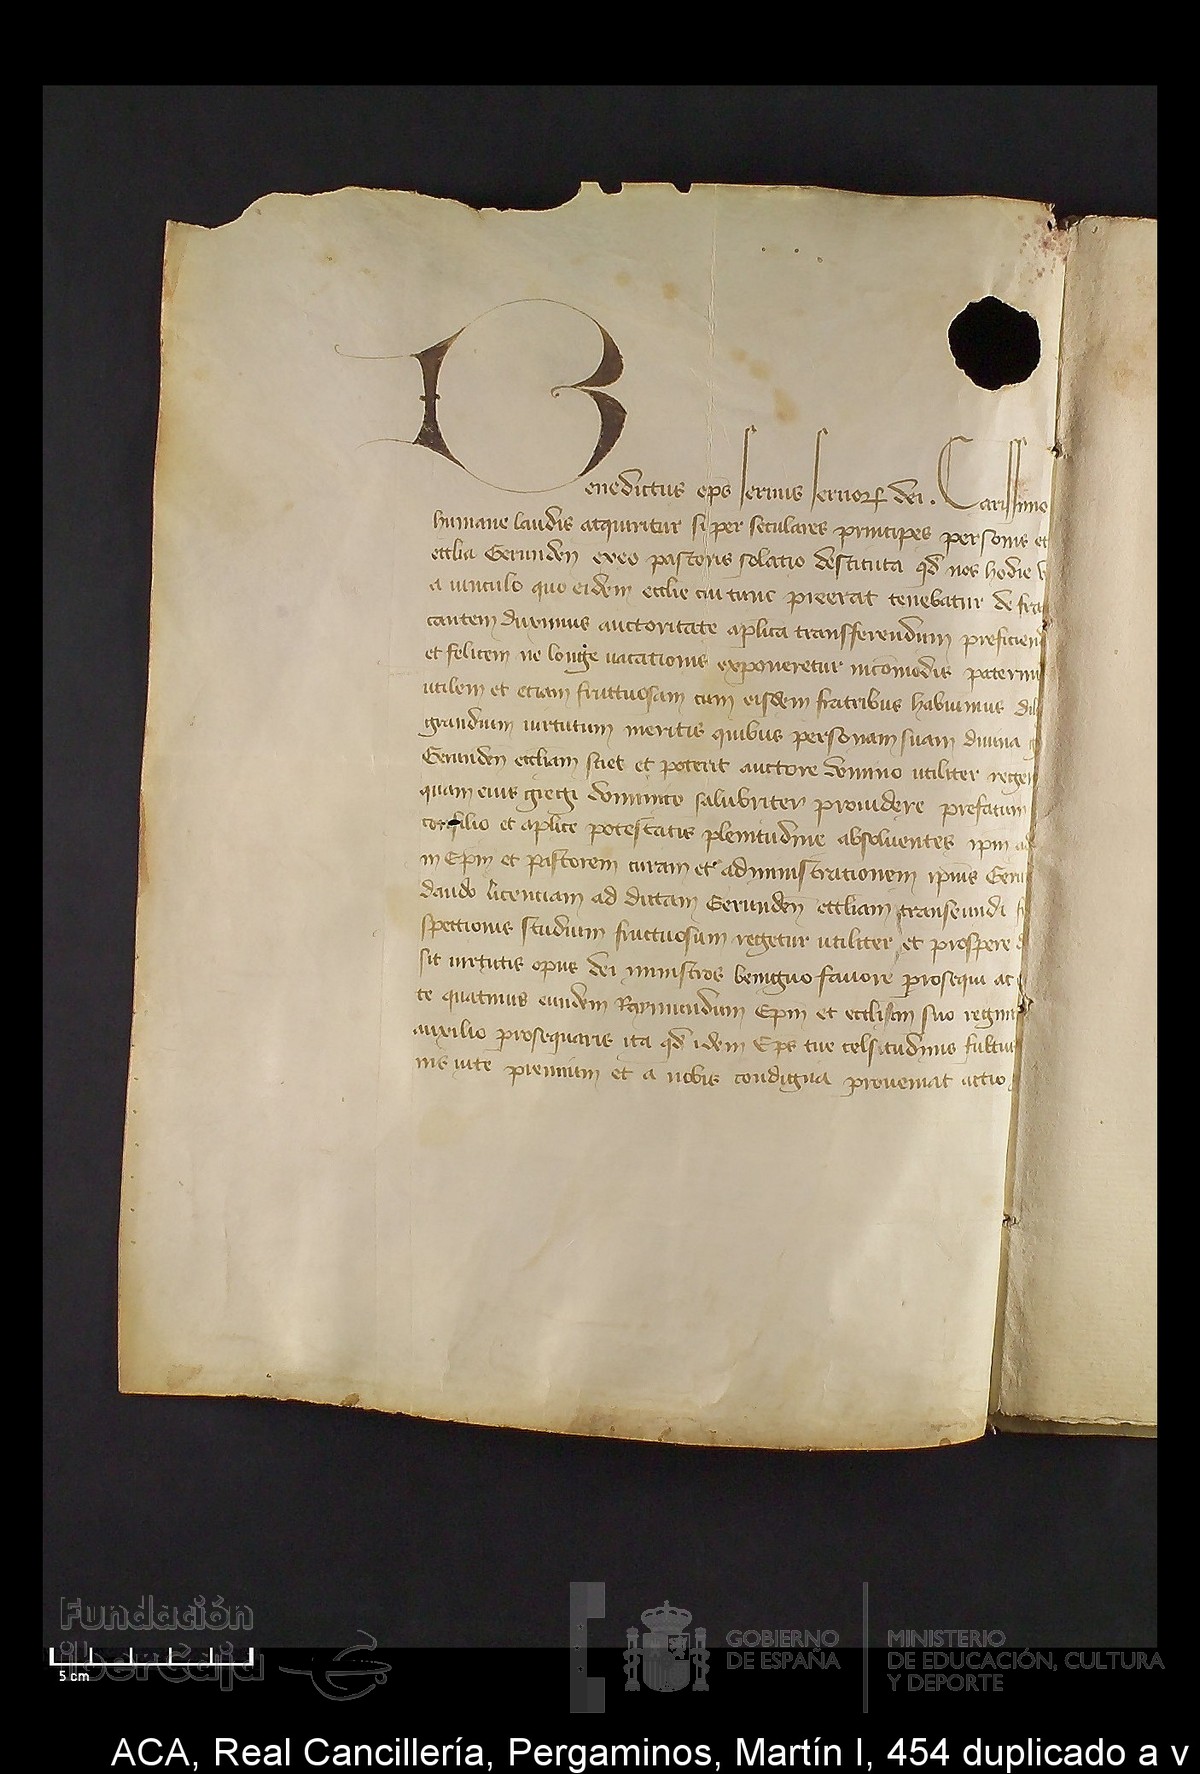 Benedictus eps servus servorꝝ dei. Carissimo
humane laudis atquiritur si per seculares principes personis et
ecclia Gerunden exeo pastoris solatio destituta qd nos hodie
a vinculo quo eidem ecclie cui tunc preerat tenebatur de fra
cantem duximus auctoritate aplica transfferendum preficiend
et felicem ne longe vacationis exponeretur incomodis paterni
utilem et etiam fruttuosam cum eisdem fratribus habuimus dil
grandium virtutum meritis quibus personam suam divina
Gerunden eccliam sciet et poterit auctore domino utiliter regere
quam eius gregi dominico salubriter providere prefatum
consilio et aplice potestatis plenitudine absolventes ipm ad
in Epm et pastorem curam et administrationem ipius Geru
dando licenciam ad dictam Gerunden eccliam transeundi
spectionis studium fructuosum regetur utiliter et prospere
sit virtutis opus dei ministros benigno favore prosequi ac
te quatinus eundem Raymundum Epm et eccliam suo regimi
auxilio prosequaris ita qd idem Eps tue celsitudinis fultus
nis vite premium et a nobis condigna proveniat actio
Fundación
iberCaja
5 cm
GOBIERNO
DE ESPAÑA
MINISTERIO
DE EDUCACIÓN, CULTURA
Y DEPORTE
ACA, Real Cancillería, Pergaminos, Martín I, 454 duplicado a v